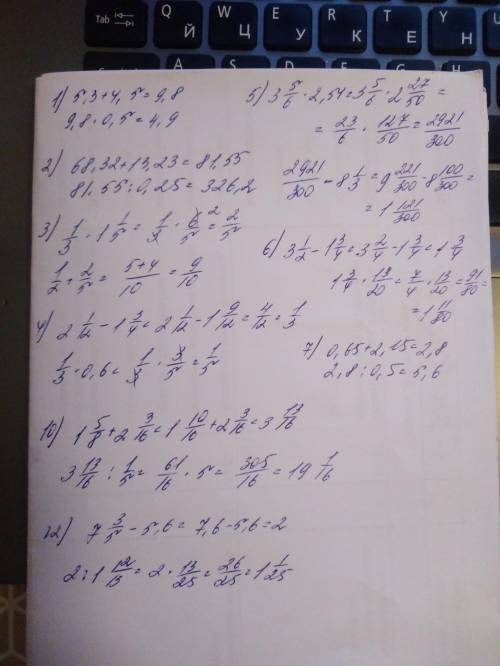 Tab Q W E R T Y
Й Ц У К Е Н
1) 5,3+4,5=9,8
9,8:0,5=4,9
2) 68,32+13,23=81,55
81,55:0,25=326,2
3) 1/3 · 1 1/5 = 1/3 · 6/5 = 2/5
1/2 + 2/5 = 5+4/10 = 9/10
4) 2 1/12 - 1 3/4 = 2 1/12 - 1 9/12 = 4/12 = 1/3
1/3 · 0,6 = 1/3 · 3/5 = 1/5
5) 3 5/6 · 2,54 = 3 5/6 · 2 27/50 =
= 23/6 · 127/50 = 2921/300
2921/300 - 8 1/3 = 9 221/300 - 8 100/300 =
= 1 121/300
6) 3 1/2 - 1 3/4 = 3 2/4 - 1 3/4 = 1 3/4
1 3/4 · 13/20 = 7/4 · 13/20 = 91/80 =
= 1 11/80
7) 0,65+2,15=2,8
2,8:0,5=5,6
10) 1 5/8 + 2 3/16 = 1 10/16 + 2 3/16 = 3 13/16
3 13/16 : 1/5 = 61/16 · 5 = 305/16 = 19 1/16
12) 7 3/5 - 5,6 = 7,6 - 5,6 = 2
2 : 1 12/13 = 2 · 13/25 = 26/25 = 1 1/25